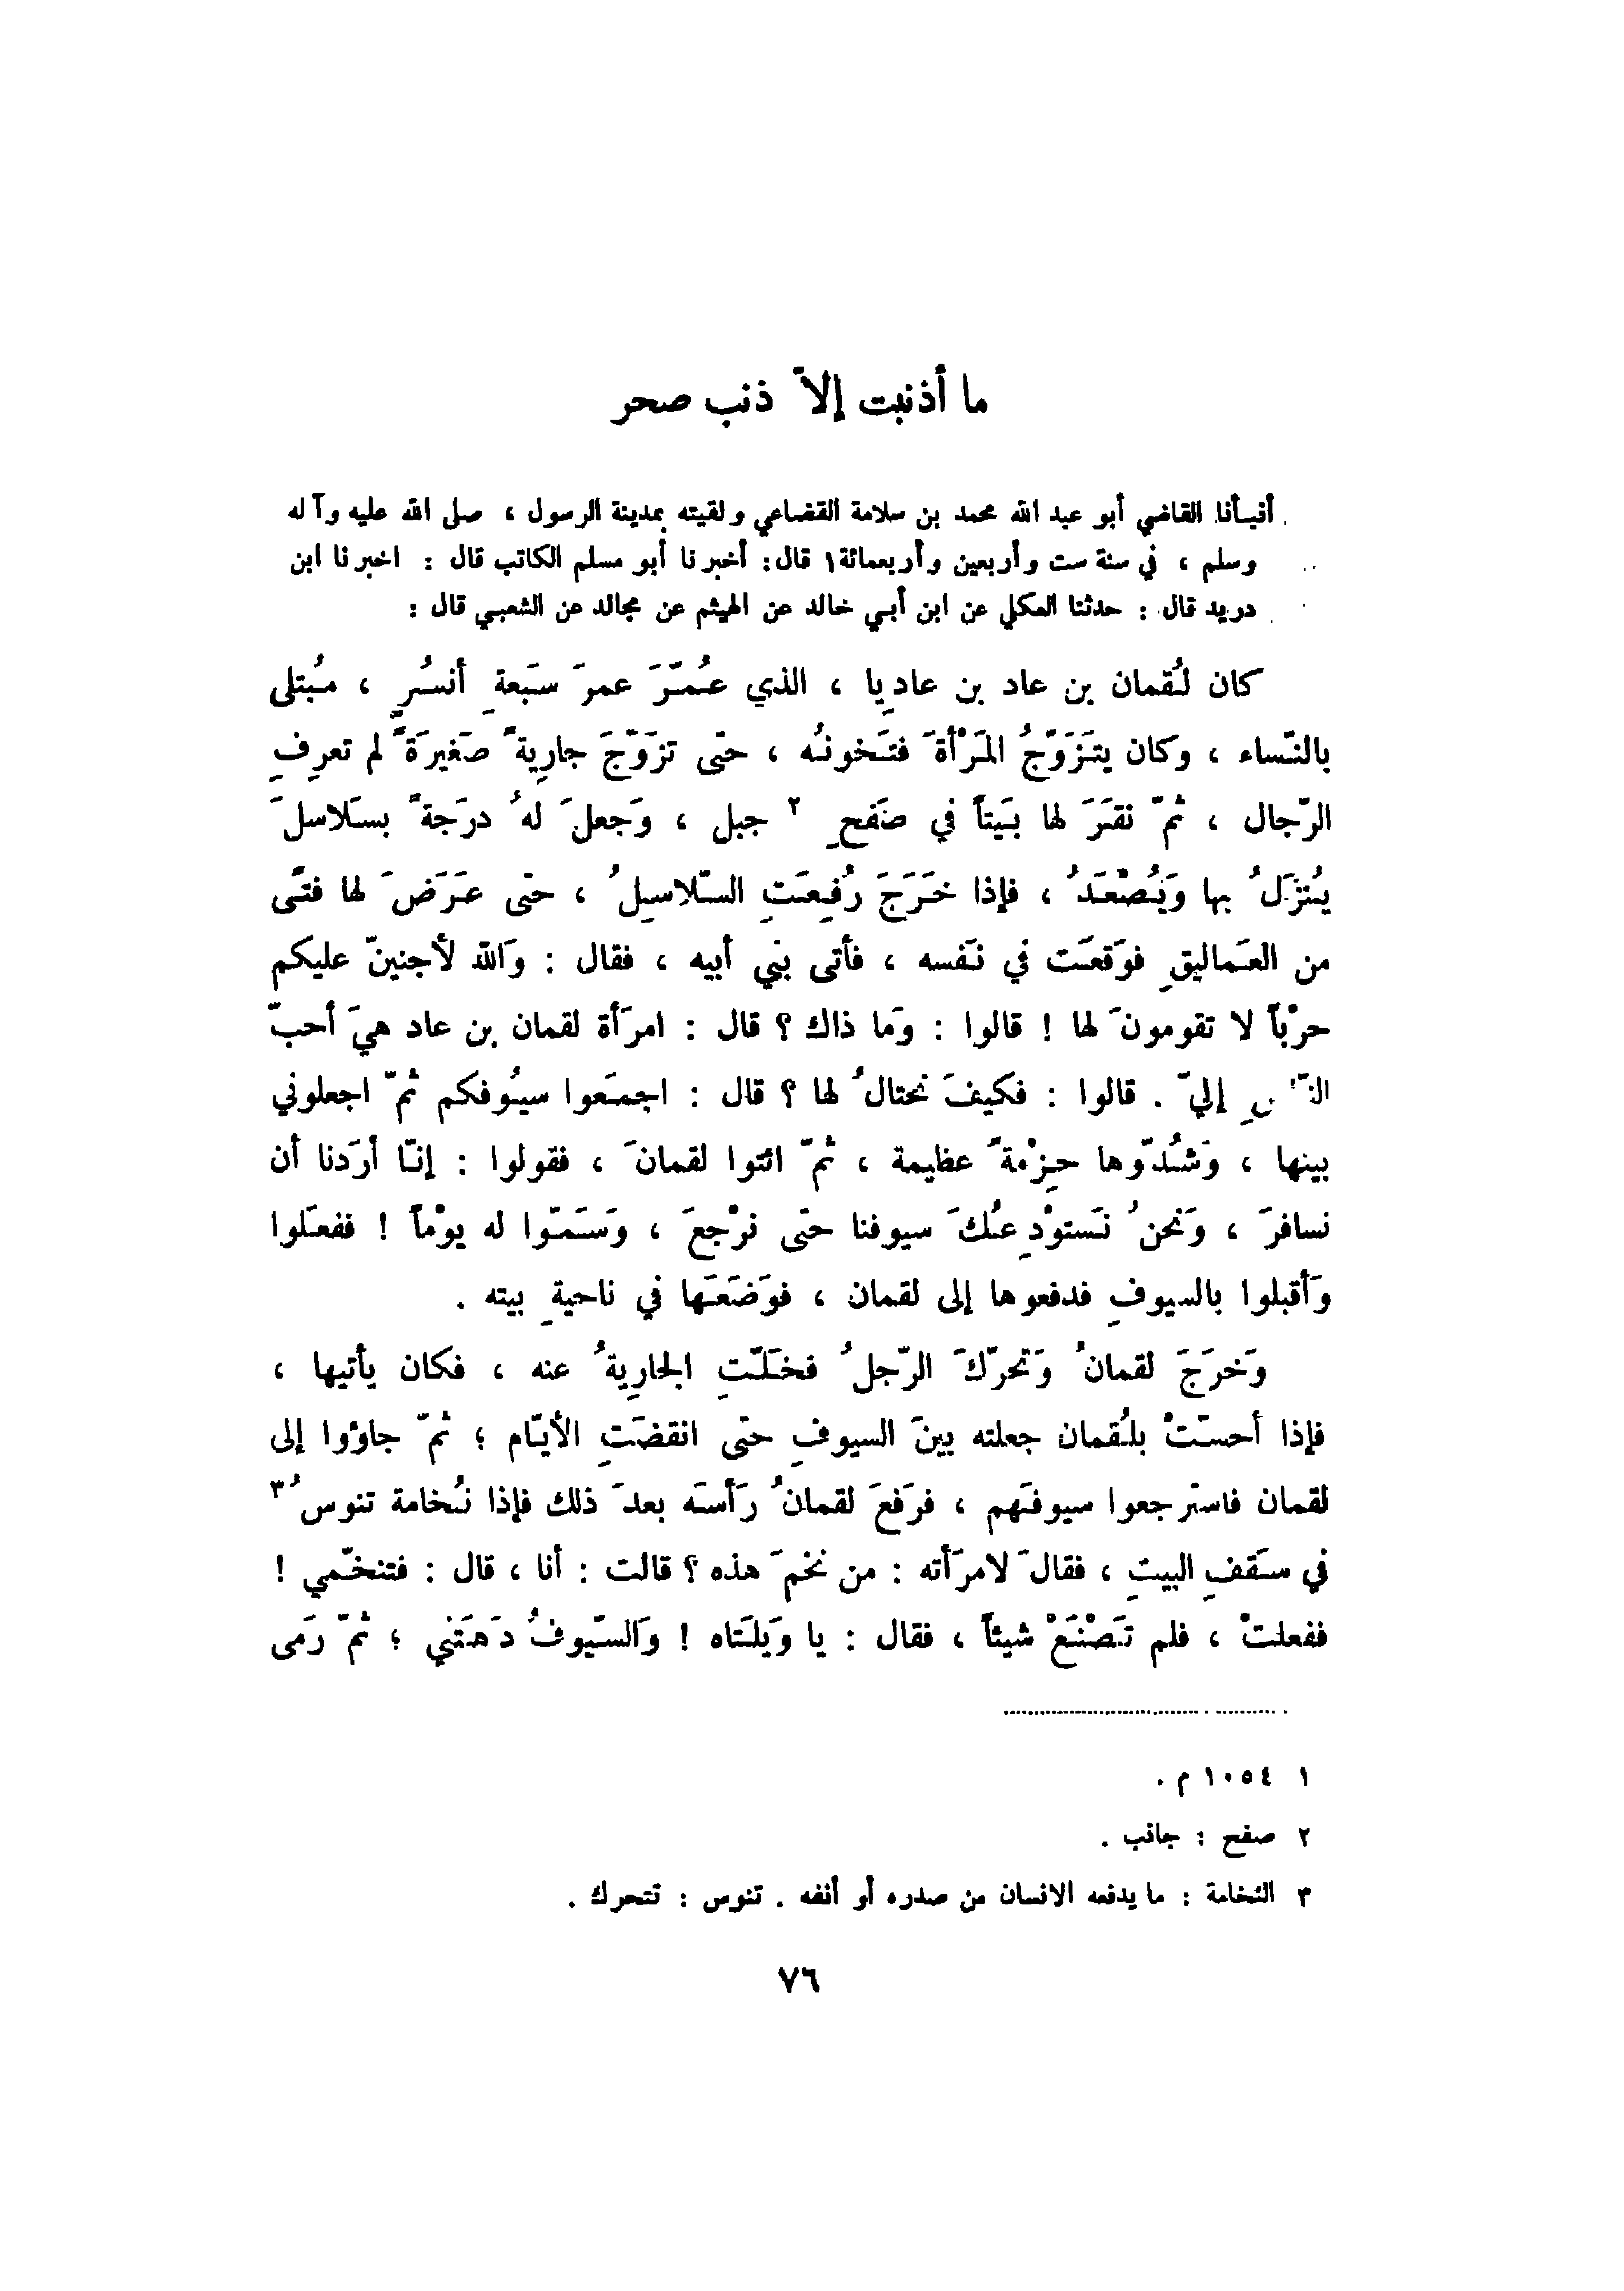 ما أذنبت إلاّ ذنب صحر
أنبأنا القاضي أبو عبد الله محمد بن سلامة القضاعي ولقيته بمدينة الرسول ، صلى الله عليه وآله
وسلم ، في سنة ست وأربعين وأربعمائة١ قال: أخبرنا أبو مسلم الكاتب قال : اخبرنا ابن
دريد قال : حدثنا العكلي عن ابن أبي خالد عن الهيثم عن مجالد عن الشعبي قال :
كان لُقمان بن عاد بن عادِيا ، الذي عُمّرَ عمرَ سَبعةِ أنسُرٍ ، مُبتلى
بالنّساء ، وكان يتَزَوّجُ المَرْأةَ فتَخونُه ، حتى تزَوّجَ جارِيةً صَغيرَةً لم تعرِفِ
الرّجال ، ثمّ نقَرَ لها بَيتاً في صَفحِ ٢ جبل ، وَجعلَ لهُ درَجةً بسَلاسلَ
يُنزَلُ بها وَيُصْعَدُ ، فإذا خَرَجَ رُفِعَتِ السّلاسِلُ ، حتى عَرَضَ لها فتًى
من العَماليقِ فوَقعَت في نَفسه ، فأتى بَني أبيه ، فقال : وَالله لأجنينّ عليكم
حرْباً لا تقومونَ لها ! قالوا : وَما ذاك ؟ قال : امرَأة لقمان بن عاد هيَ أحبّ
النّاسِ إليّ . قالوا : فكيفَ نحتالُ لها ؟ قال : اجمَعوا سيُوفكم ثمّ اجعلوني
بينها ، وَشُدّوها حِزْمةً عظيمة ، ثمّ ائتوا لقمانَ ، فقولوا : إنّا أرَدنا أن
نسافرَ ، وَنحنُ نَستوْدِعُكَ سيوفنا حتى نرْجعَ ، وَسَمّوا له يوْماً ! ففعَلوا
وَأقبلوا بالسيوفِ فدفعوها إلى لقمان ، فوَضَعَها في ناحيةِ بيته .
وَخرَجَ لقمانُ وَتحرّكَ الرّجلُ فخَلّتِ الجارِيةُ عنه ، فكان يأتيها ،
فإذا أحسّتْ بلُقمان جعلته بينَ السيوفِ حتى انقضَتِ الأيّام ؛ ثمّ جاؤوا إلى
لقمان فاسترجعوا سيوفَهم ، فرَفعَ لقمانُ رَأسَه بعدَ ذلك فإذا نُخامة تنوسُ٣
في سَقفِ البيتِ ، فقالَ لامرَأته : من نخمَ هذه ؟ قالت : أنا ، قال : فتنخّمي !
ففعلتْ ، فلم تَصْنَعْ شيئاً ، فقال : يا وَيلَتاه ! وَالسّيوفُ دَهَتني ؛ ثمّ رَمى
١ ١٠٥٤ م .
٢ صفح : جانب .
٣ النخامة : ما يدفعه الانسان من صدره أو أنفه . تنوس : تتحرك .
٧٦